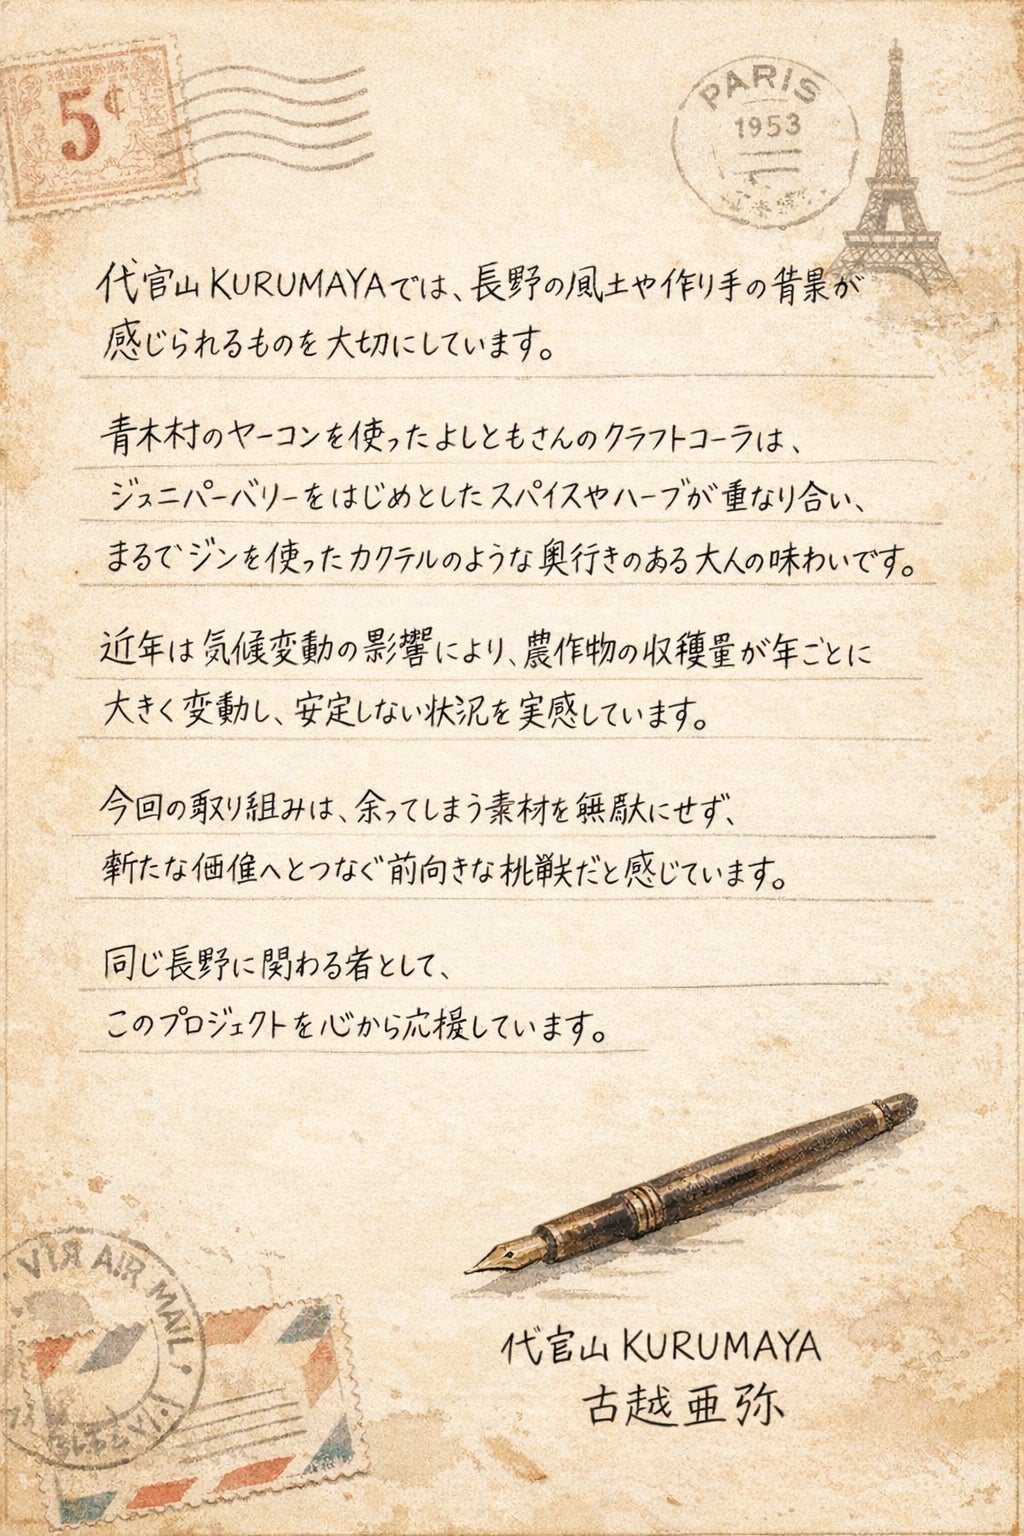 5¢
PARIS
1953
代官山 KURUMAYAでは、長野の風土や作り手の背景が
感じられるものを大切にしています。
青木村のヤーコンを使ったよしともさんのクラフトコーラは、
ジュニパーベリーをはじめとしたスパイスやハーブが重なり合い、
まるでジンを使ったカクテルのような奥行きのある大人の味わいです。
近年は気候変動の影響により、農作物の収穫量が年ごとに
大きく変動し、安定しない状況を実感しています。
今回の取り組みは、余ってしまう素材を無駄にせず、
新たな価値へとつなぐ前向きな挑戦だと感じています。
同じ長野に関わる者として、
このプロジェクトを心から応援しています。
VIA AIR MAIL
代官山 KURUMAYA
古越亜弥